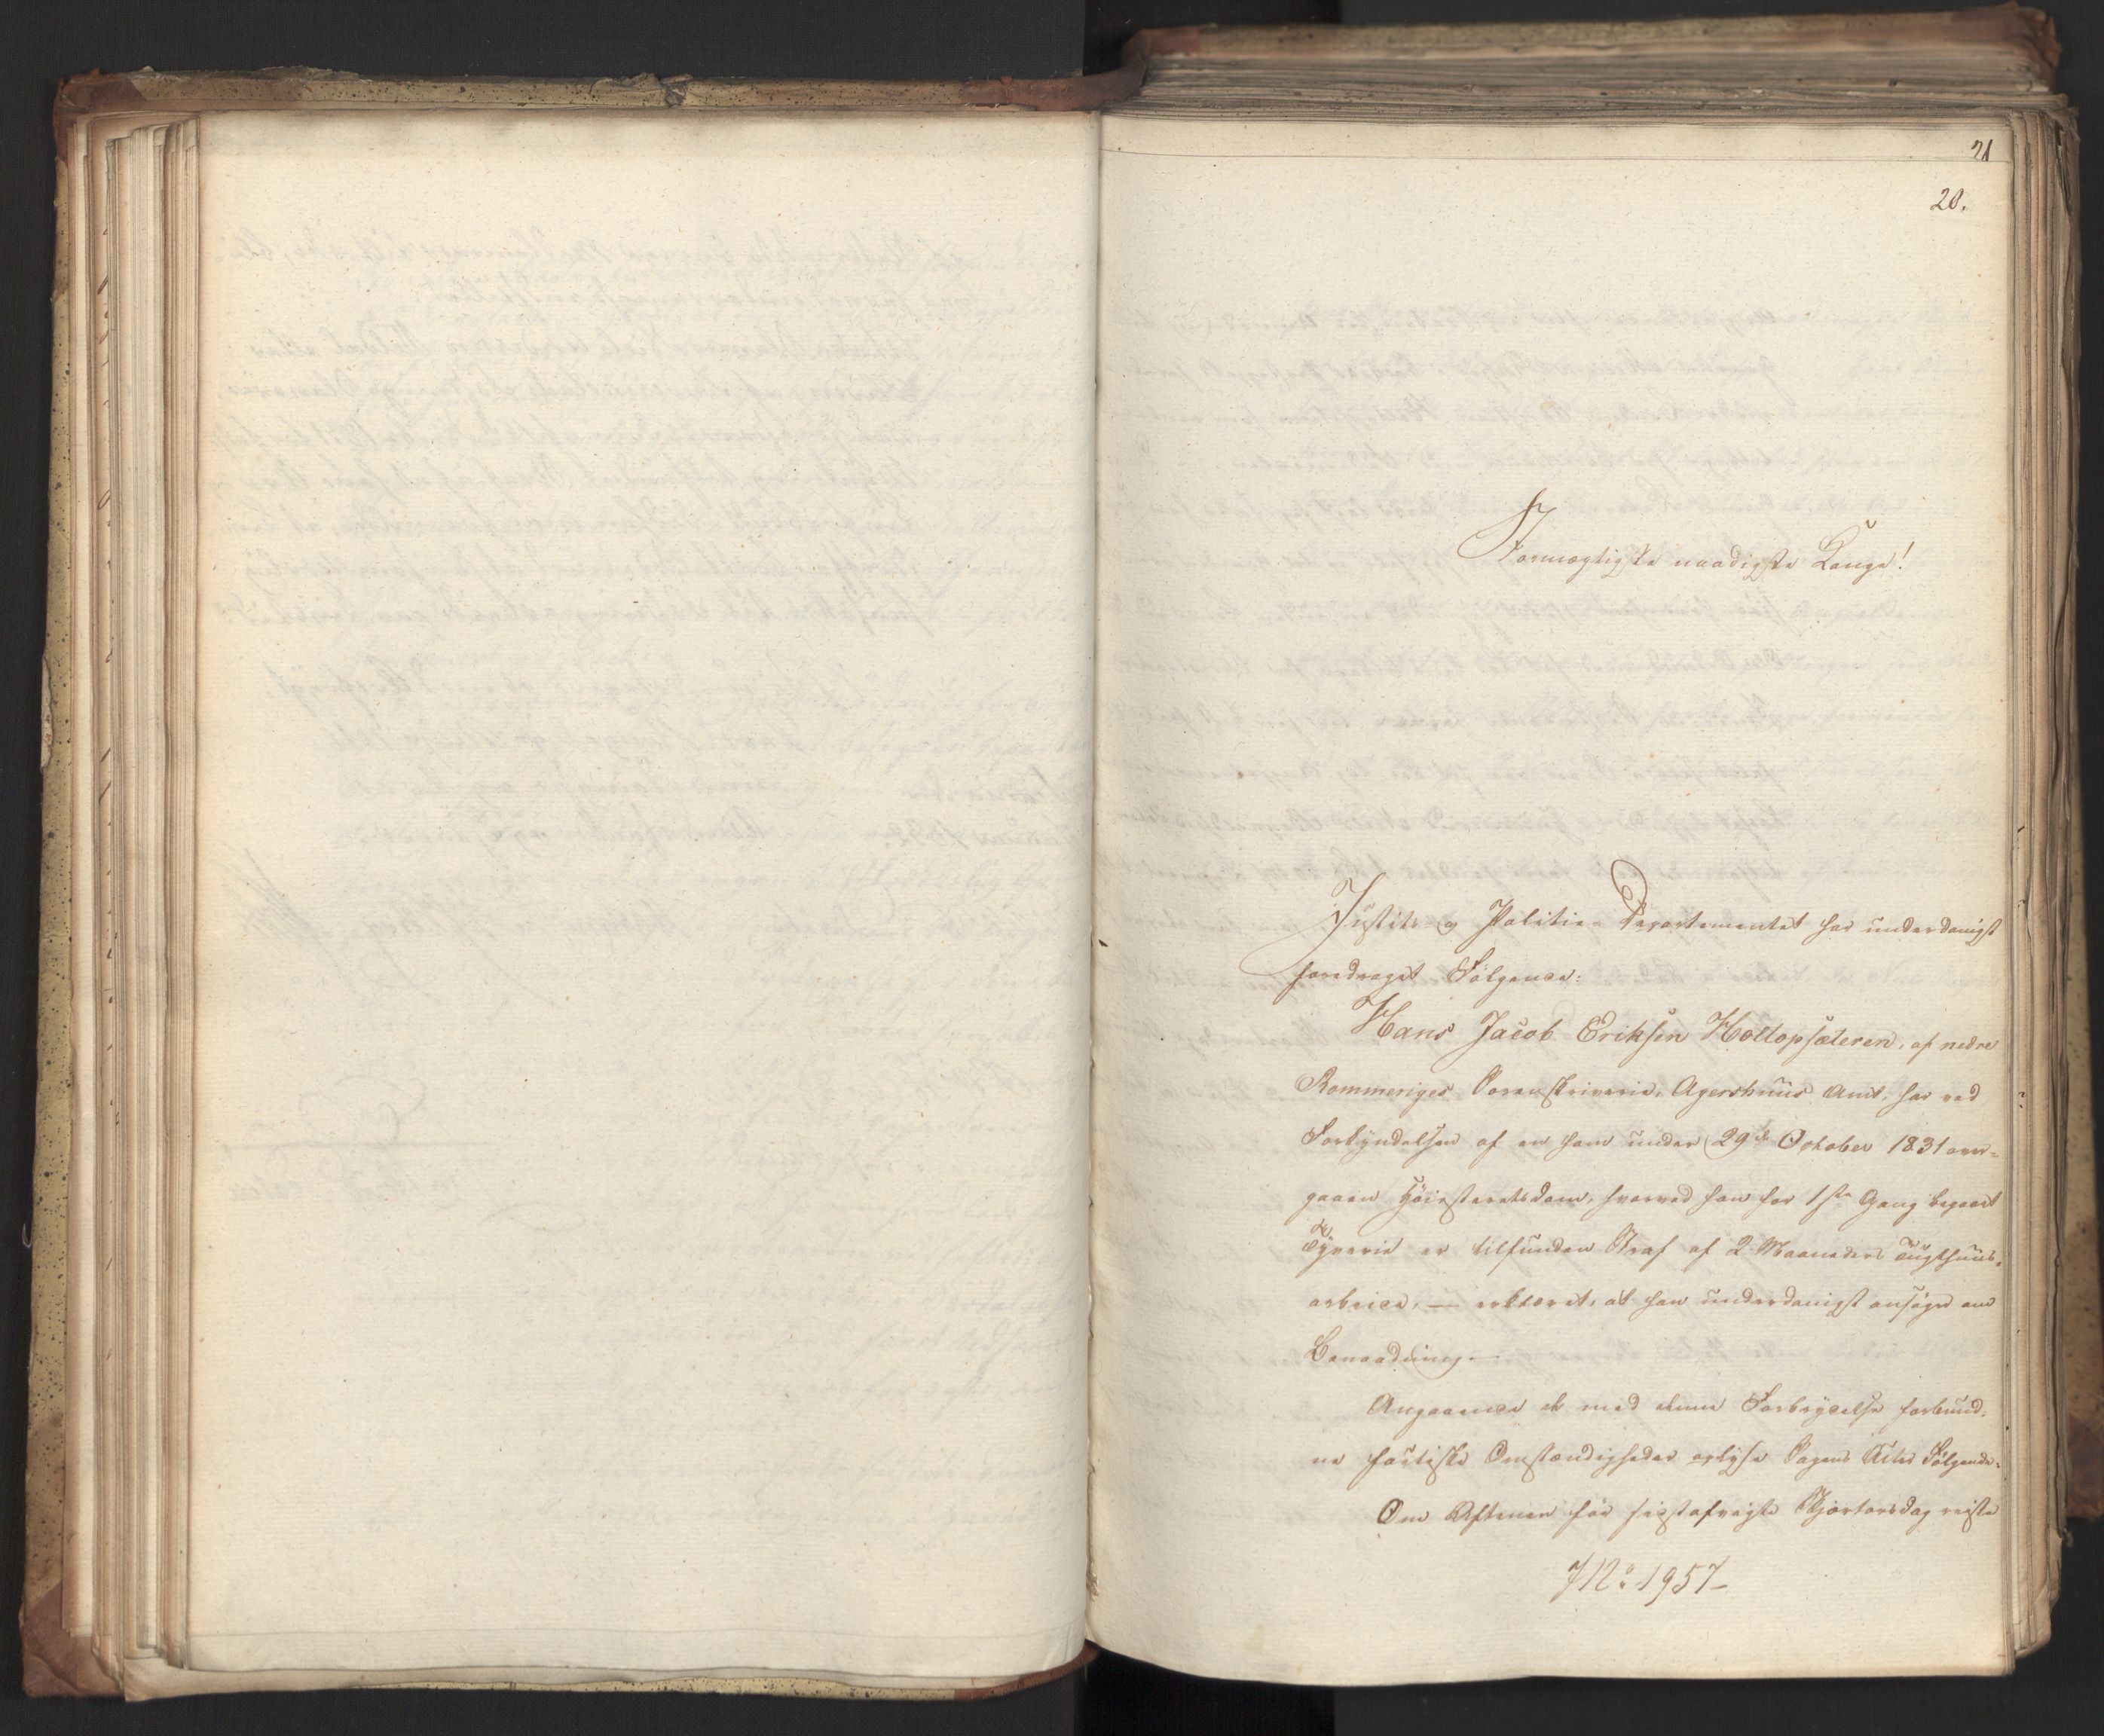 21
20.
Stormægtigste naadigste Konge!
Justits- og Politie-Departementet har underdanigst
foredraget Følgende:
Hans Jacob Eriksen Holtopsæteren, af nedre
Rommeriges Sorenskriverie, Agershuus Amt, har ved
Forkyndelsen af en ham under 29de October 1831 over-
gaaen Høiesteretsdom, hvorved han for 1ste Gang begaaet
Tyverie er tilfunden Straf af 2 Maaneders Tugthuus-
arbeide, — erklæret, at han underdanigst ansøger om
Benaadning.
Angaaende de med denne Forbrydelse forbund-
ne factiske Omstændigheder oplyse Sagens Akter Følgende:
Om Aftenen før sidstafvigte Skjærtorsdag reiste
JNo 1957-